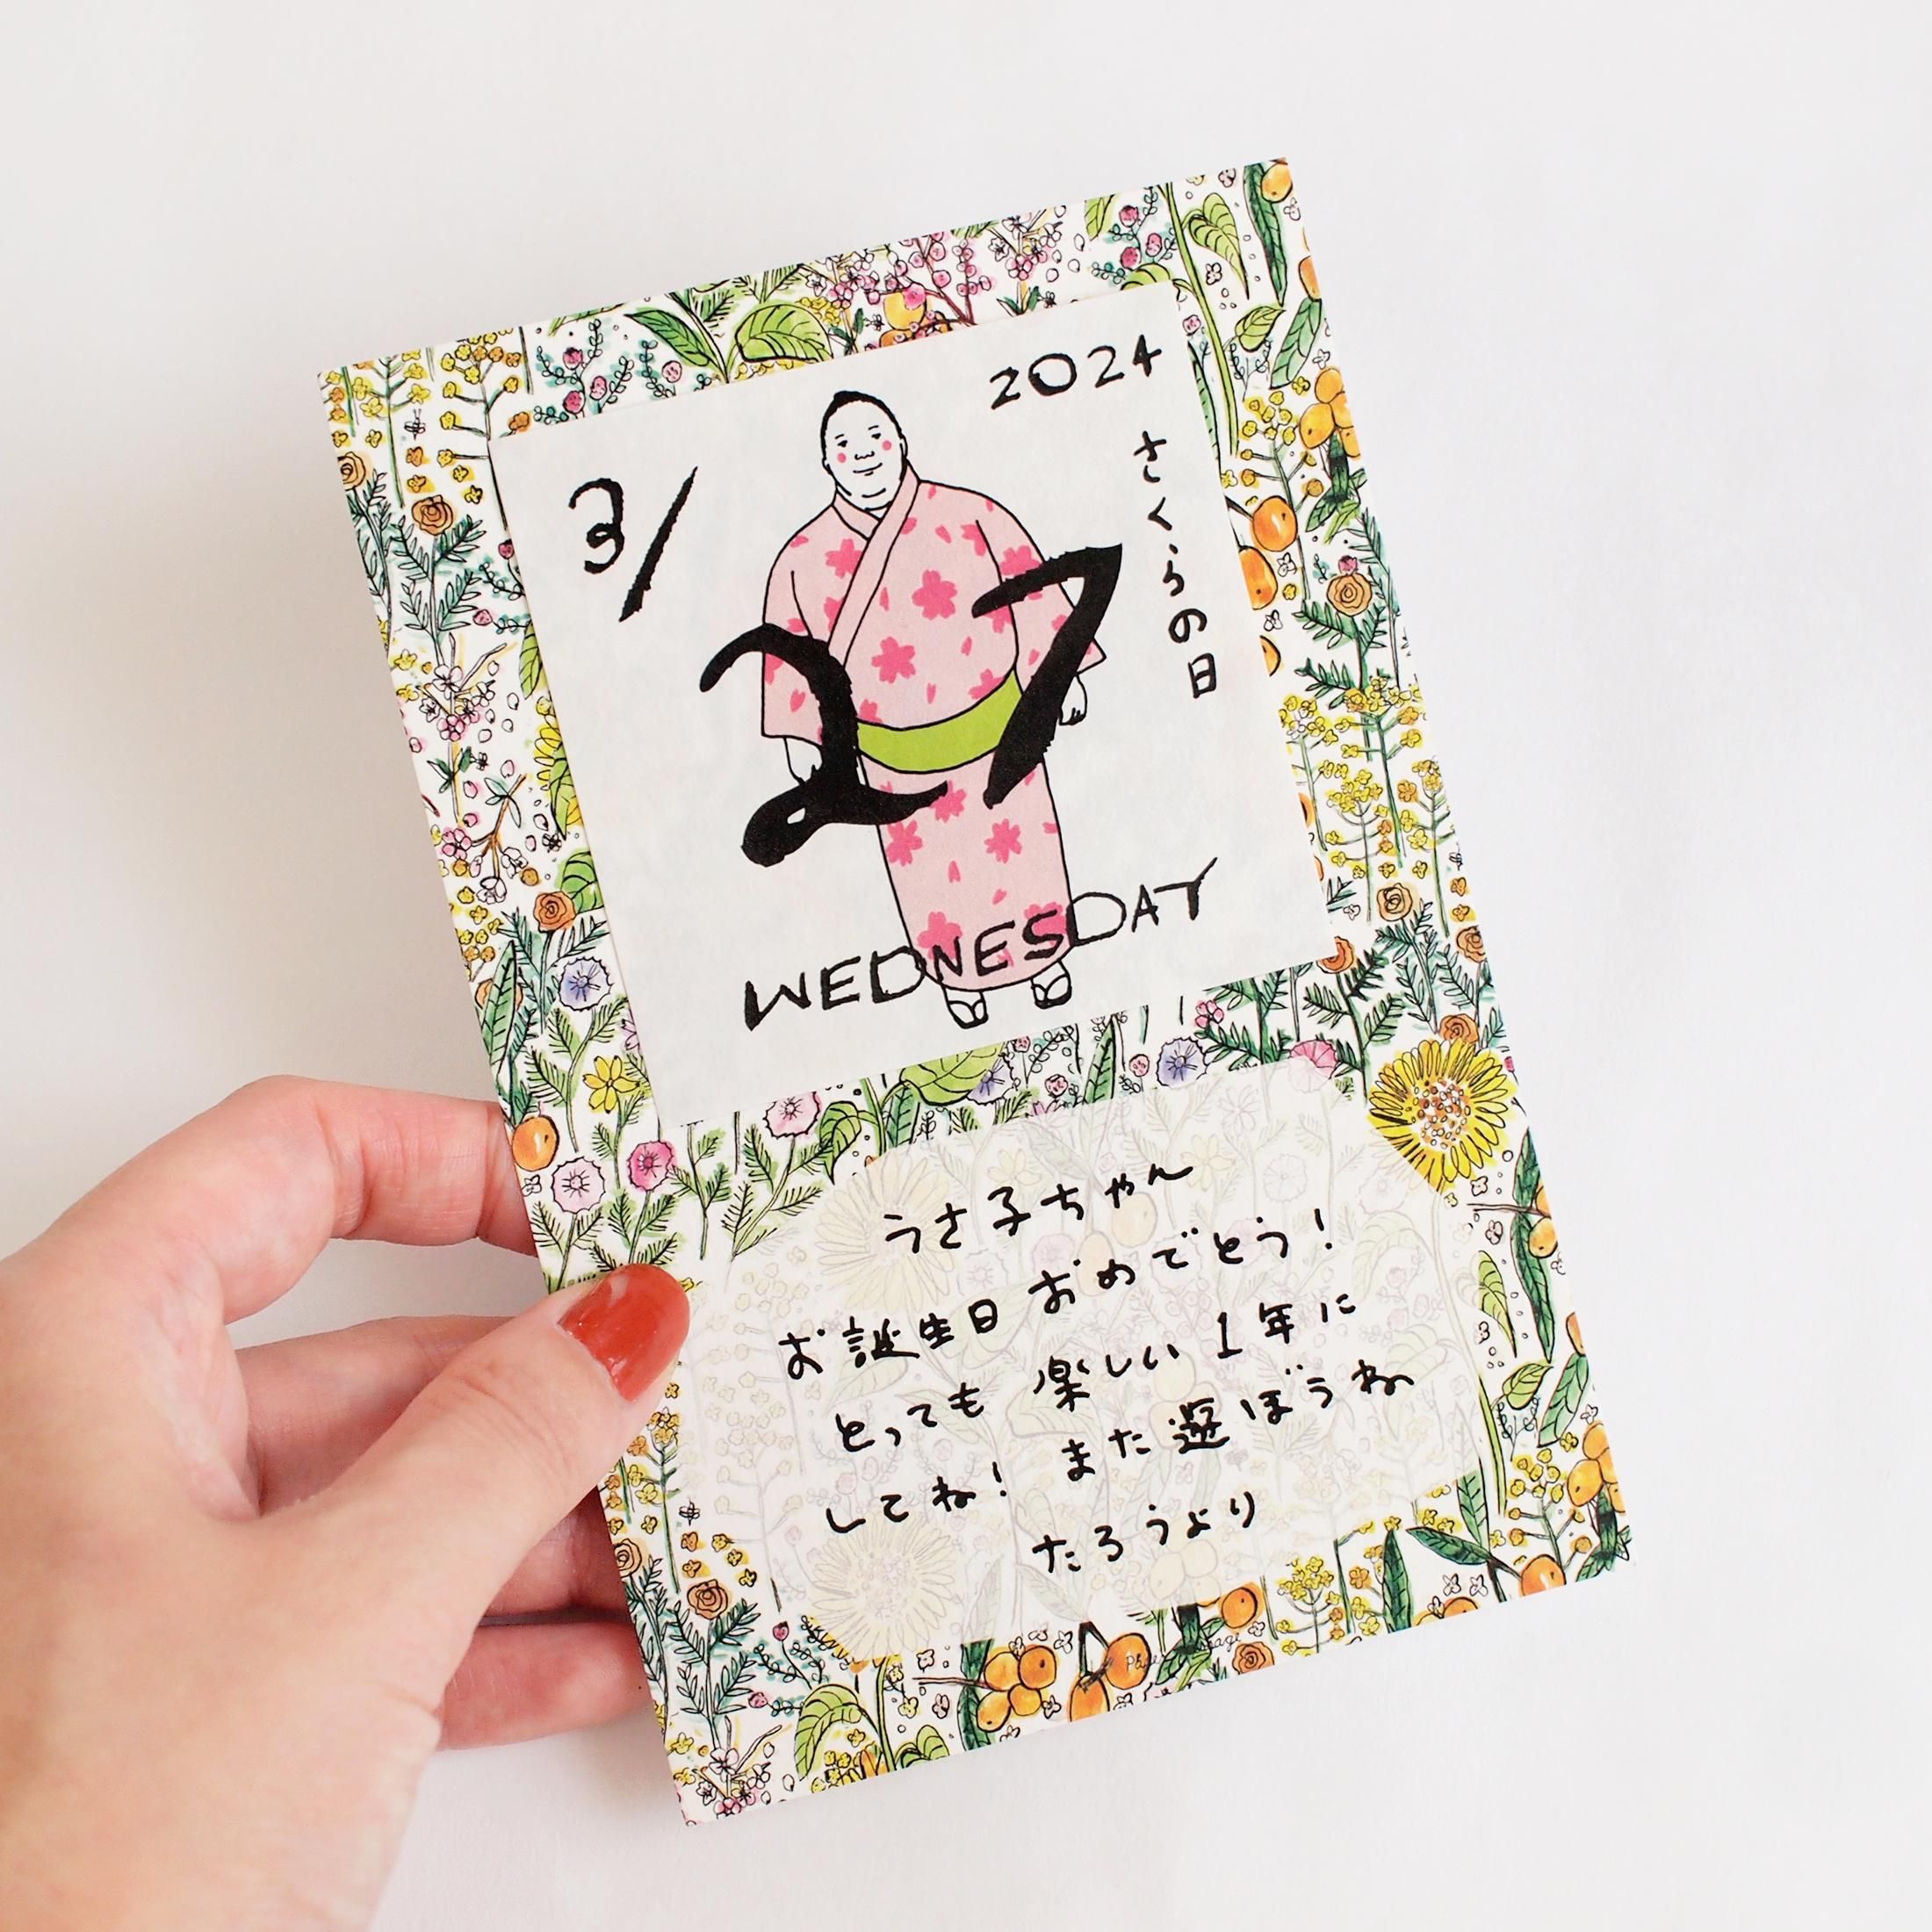 2024
3/
27
さくらの日
WEDNESDAY
うさ子ちゃん
お誕生日おめでとう!
とっても 楽しい1年に
してね! また遊ぼうね
たろうより